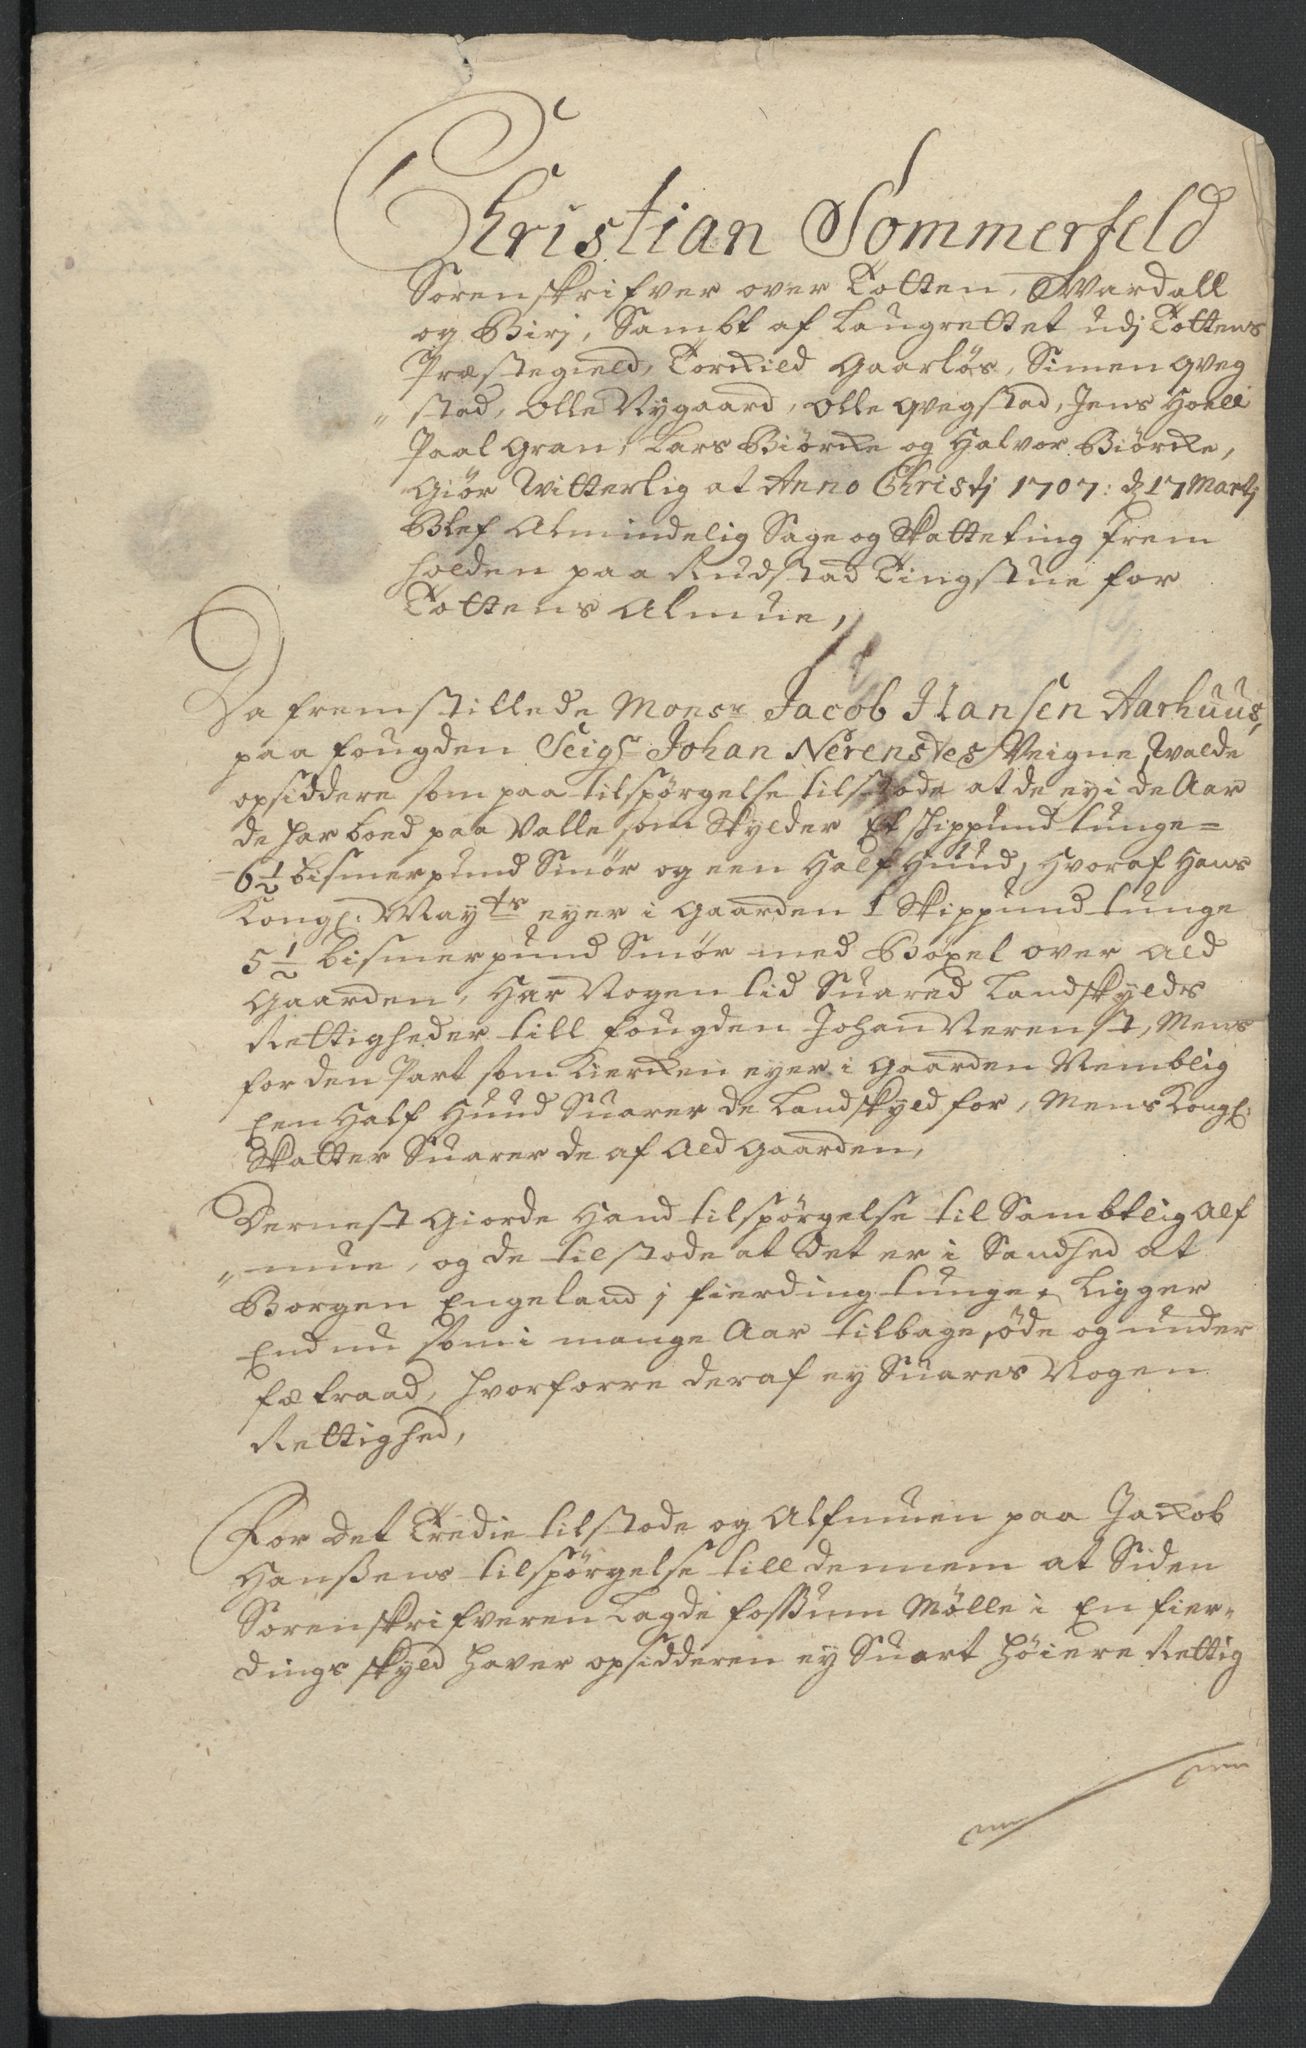 Christian Sommerfeld
Sorenskrifver over Totten, Wardall
og Birj, Sambt af Laugrettet udj Tottens
Præstegield, Torkild Gaarløs, Simen Qveg
„ stad, Olle Nygaard, Olle Qvegstad, Jens Hoell
Paal Gran, Lars Biørke og Halvor Biørke,
Giør Witterlig at Anno Christj 1707: d 17 Martj
Blef Almindelig Sage og Skatteting frem
holden paa Rudstad Tingstue for
Tottens Almue,
Da fremstillede Monsr Jacob Hansen Aarhuus,
paa fougden Seigr Johan Nerenstes Veigne, Walde
opsiddere som paa tilspørgelse tilstode at de eyi de Aar
de har boed paa Valle som Skylder Et shippund tunge =
- 6½ bismerpund Smør og een Half Huud, Hvoraf Hans
Kongl: Mayts eyer i Gaarden 1 Skippund tunge
5½ bismerpund Smør med Bøxel over Ald
Gaarden, Har Nogen tid Suared Landskylds
Rettigheder till fougden Johan Nerenst, Mens
for den Part som Kierken eyer i Gaarden Nemblig
Een Half Huud Suarer de Landskyld for, Mens Kongl:
Skatter Suarer de af Ald Gaarden,
Dernest Giorde Hand tilspørgelse til Sambtlig Alf
„ mue, og de tilstode at det er i Sandhed at
Borgen Engeland j fierding tunge, Ligger
End nu som i mange Aar tilbage, øde og under
fætraad, hvorforre deraf ey Suares Nogen
Rettighed,
For det Tredie tilstode og Alfmuen paa Jackob
Hanßens tilspørgelse till dennem at Siden
Sorenskrifveren Lagde foßum Mølle i En fier„
dings skyld haver opsidderen ey Suart høiere Rettig